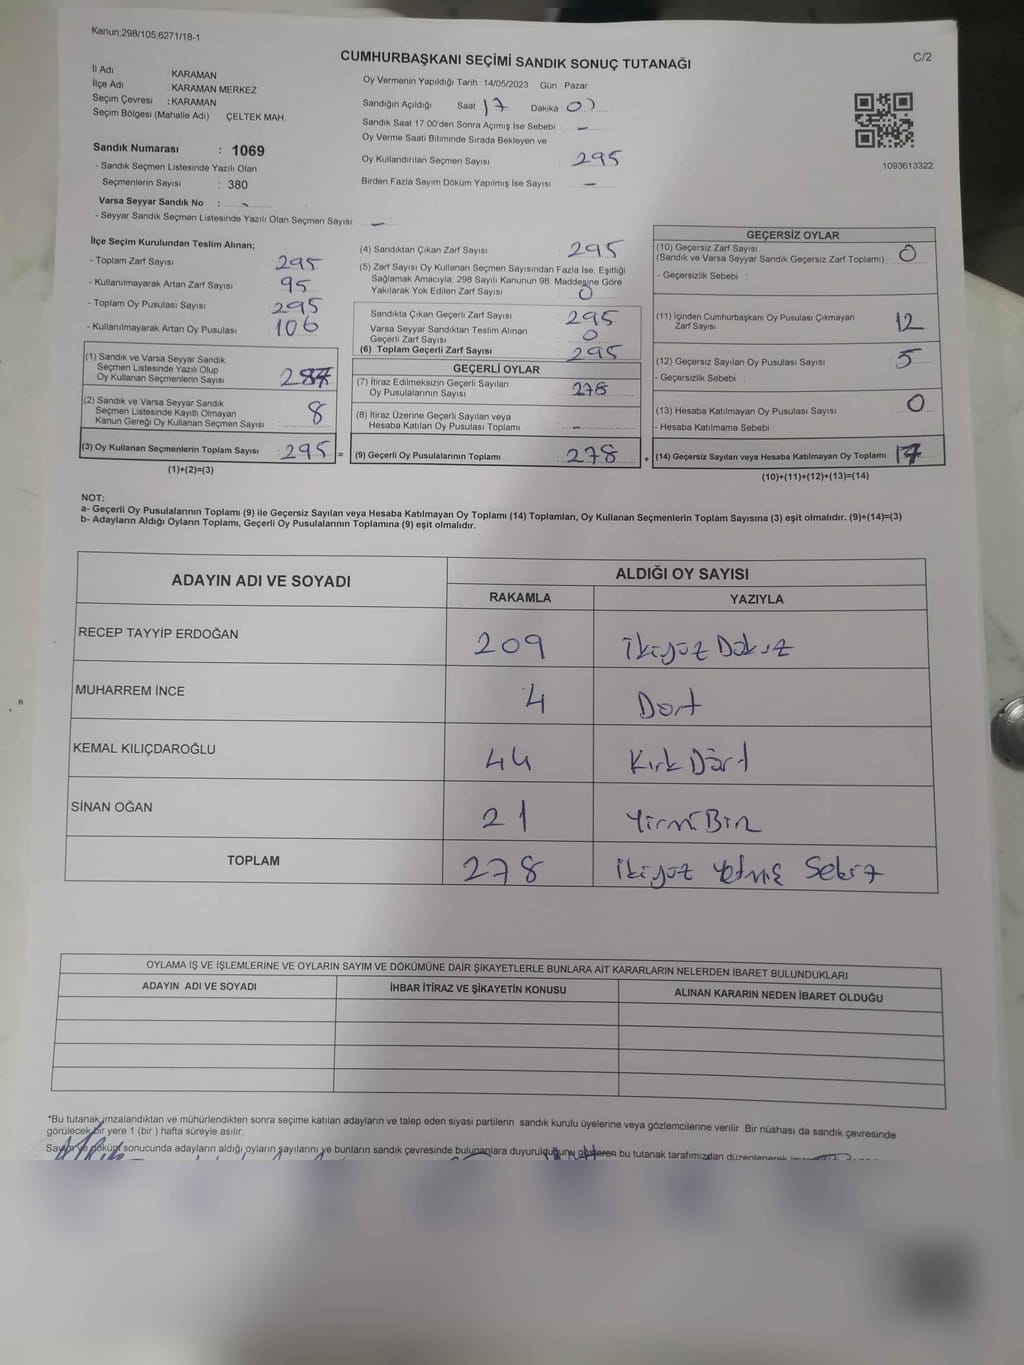 Kanun;298/105;6271/18-1
CUMHURBAŞKANI SEÇİMİ SANDIK SONUÇ TUTANAĞI
C/2
İl Adı KARAMAN
İlçe Adı KARAMAN MERKEZ
Seçim Çevresi : KARAMAN
Seçim Bölgesi (Mahalle Adı) ÇELTEK MAH.
Sandık Numarası : 1069
- Sandık Seçmen Listesinde Yazılı Olan
Seçmenlerin Sayısı : 380
Varsa Seyyar Sandık No : -
- Seyyar Sandık Seçmen Listesinde Yazılı Olan Seçmen Sayısı -
Oy Vermenin Yapıldığı Tarih 14/05/2023 Gün Pazar
Sandığın Açıldığı Saat 17 Dakika
Sandık Saat 17:00'den Sonra Açımış İse Sebebi -
Oy Verme Saati Bitiminde Sırada Bekleyen ve
Oy Kullandırılan Seçmen Sayısı 295
Birden Fazla Sayım Döküm Yapılmış İse Sayısı -
1093613322
İlçe Seçim Kurulundan Teslim Alınan;
- Toplam Zarf Sayısı 295
- Kullanılmayarak Artan Zarf Sayısı 95
- Toplam Oy Pusulası Sayısı 295
- Kullanılmayarak Artan Oy Pusulası 106
(1) Sandık ve Varsa Seyyar Sandık
Seçmen Listesinde Yazılı Olup
Oy Kullanan Seçmenlerin Sayısı 287
(2) Sandık ve Varsa Seyyar Sandık
Seçmen Listesinde Kayıtlı Olmayan
Kanun Gereği Oy Kullanan Seçmen Sayısı 8
(3) Oy Kullanan Seçmenlerin Toplam Sayısı 295 =
(1)+(2)=(3)
(4) Sandıktan Çıkan Zarf Sayısı 295
(5) Zarf Sayısı Oy Kullanan Seçmen Sayısından Fazla İse, Eşitliği
Sağlamak Amacıyla, 298 Sayılı Kanunun 98. Maddesine Göre
Yakılarak Yok Edilen Zarf Sayısı 0
Sandıkta Çıkan Geçerli Zarf Sayısı 295
Varsa Seyyar Sandıktan Teslim Alınan
Geçerli Zarf Sayısı 0
(6) Toplam Geçerli Zarf Sayısı 295
GEÇERLİ OYLAR
(7) İtiraz Edilmeksizin Geçerli Sayılan
Oy Pusulalarının Sayısı 278
(8) İtiraz Üzerine Geçerli Sayılan veya
Hesaba Katılan Oy Pusulası Toplamı -
(9) Geçerli Oy Pusulalarının Toplamı 278 +
GEÇERSİZ OYLAR
(10) Geçersiz Zarf Sayısı
(Sandık ve Varsa Seyyar Sandık Geçersiz Zarf Toplamı) 0
- Geçersizlik Sebebi :
(11) İçinden Cumhurbaşkanı Oy Pusulası Çıkmayan
Zarf Sayısı 12
(12) Geçersiz Sayılan Oy Pusulası Sayısı 5
- Geçersizlik Sebebi :
(13) Hesaba Katılmayan Oy Pusulası Sayısı 0
- Hesaba Katılmama Sebebi :
(14) Geçersiz Sayılan veya Hesaba Katılmayan Oy Toplamı 17
(10)+(11)+(12)+(13)=(14)
NOT:
a- Geçerli Oy Pusulalarının Toplamı (9) ile Geçersiz Sayılan veya Hesaba Katılmayan Oy Toplamı (14) Toplamları, Oy Kullanan Seçmenlerin Toplam Sayısına (3) eşit olmalıdır. (9)+(14)=(3)
b- Adayların Aldığı Oyların Toplamı, Geçerli Oy Pusulalarının Toplamına (9) eşit olmalıdır.
ADAYIN ADI VE SOYADI ALDIĞI OY SAYISI
RAKAMLA YAZIYLA
RECEP TAYYİP ERDOĞAN 209 İkiyüz Dokuz
MUHARREM İNCE 4 Dort
KEMAL KILIÇDAROĞLU 44 Kırk Dört
SİNAN OĞAN 21 Yirmi Bir
TOPLAM 278 İkiyüz Yetmiş Sekiz
OYLAMA İŞ VE İŞLEMLERİNE VE OYLARIN SAYIM VE DÖKÜMÜNE DAİR ŞİKAYETLERLE BUNLARA AİT KARARLARIN NELERDEN İBARET BULUNDUKLARI
ADAYIN ADI VE SOYADI İHBAR İTİRAZ VE ŞİKAYETİN KONUSU ALINAN KARARIN NEDEN İBARET OLDUĞU
*Bu tutanak imzalandıktan ve mühürlendikten sonra seçime katılan adayların ve talep eden siyasi partilerin sandık kurulu üyelerine veya gözlemcilerine verilir Bir nüshası da sandık çevresinde
görülecek bir yere 1 (bir) hafta süreyle asılır.
Sayım ve döküm sonucunda adayların aldığı oyların sayılarını ve bunların sandık çevresinde bulunanlara duyurulduğunu gösteren bu tutanak tarafımızdan düzenlenerek